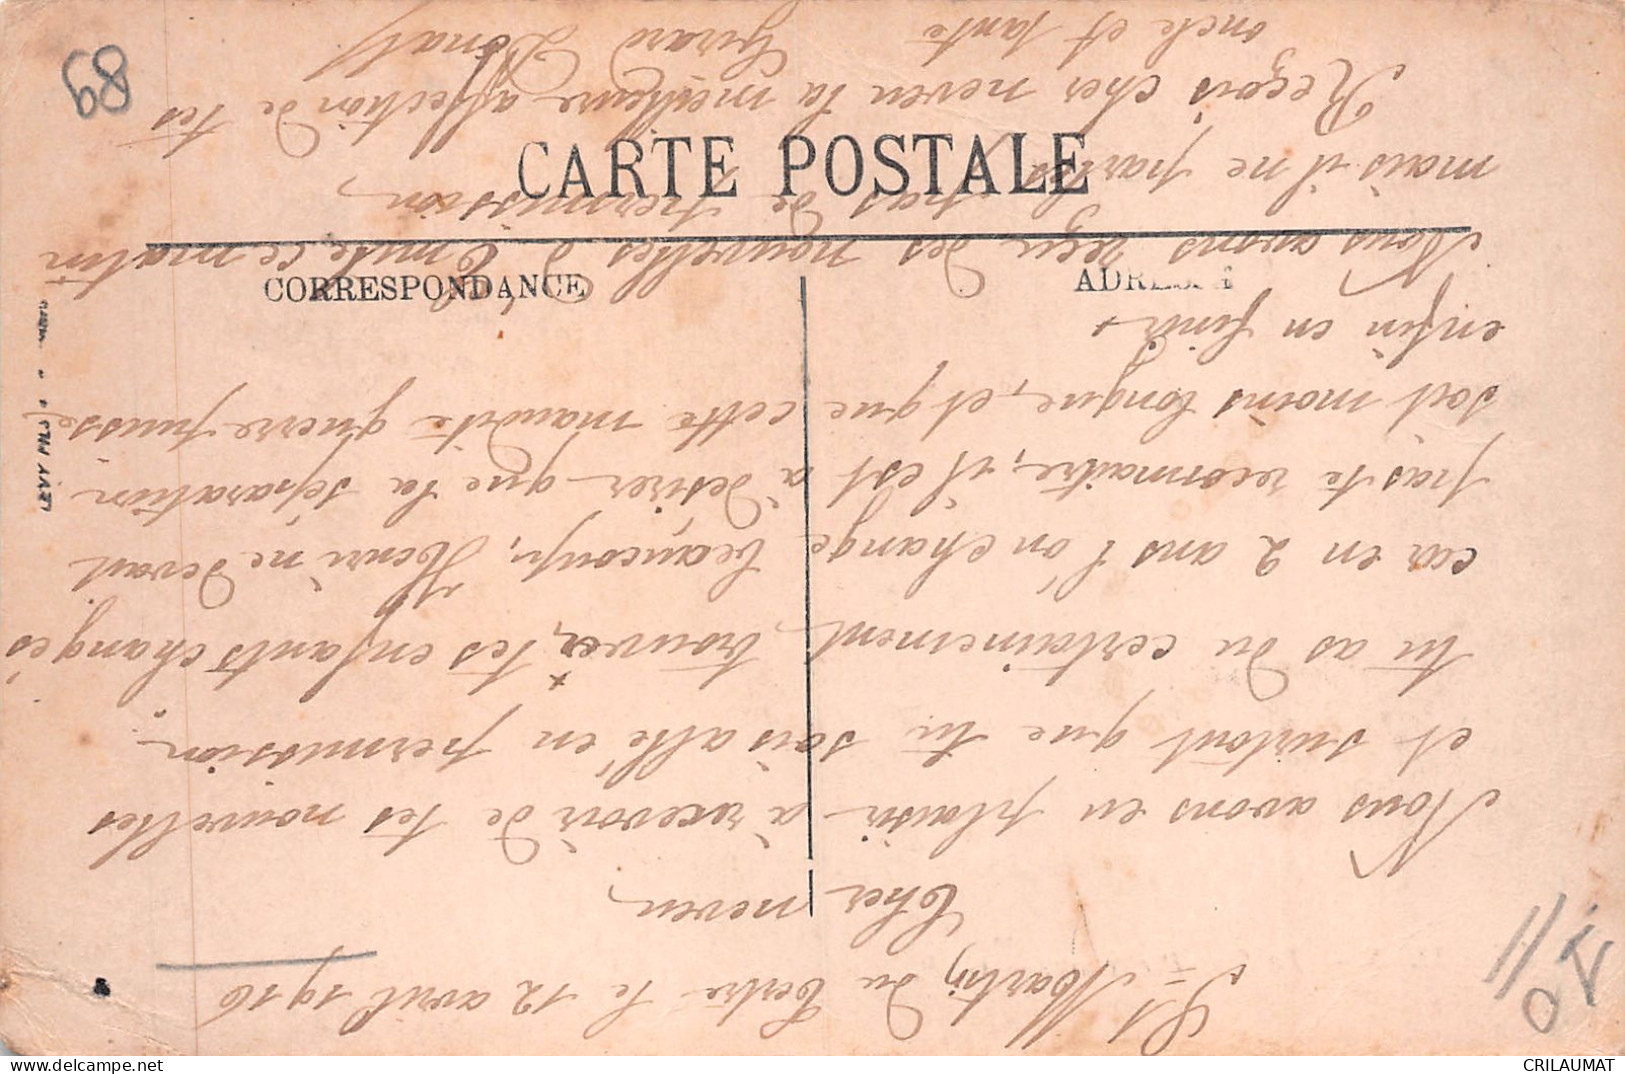 CARTE POSTALE
CORRESPONDANCE
ADRESSE
LEVY FILS
St Martin du Tertre le 12 avril 1916
Cher neveu
Nous avons eu plaisir à recevoir de tes nouvelles
et surtout que tu sois allé en permission
tu as du certainement trouver tes enfants changés
car en 2 ans l'on change beaucoup, Henri ne devait
pas te reconnaitre, il est à desirer que la séparation
soit moins longue, et que cette maudite guerre puisse
enfin en finir
Nous avons reçu des nouvelles d'Emile ce matin
mais il ne parle pas de permission
Reçois cher neveu la meilleure affection de tes
oncle et tante Girard Donat
68
10
CRILAUMAT